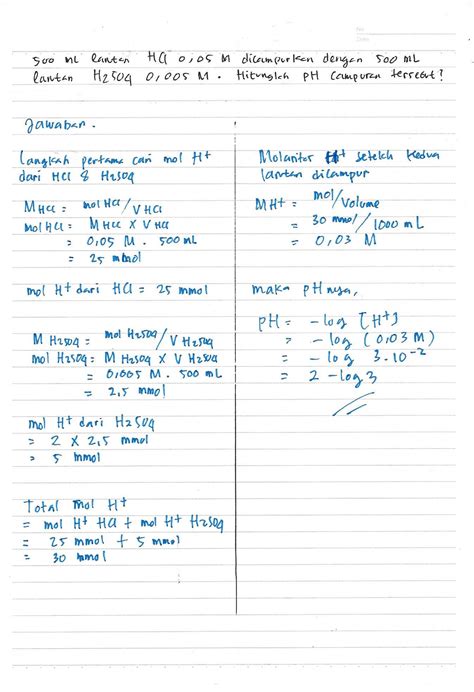 No.
Date
500 mL larutan HCl 0,05 M dicampurkan dengan 500 mL
larutan H2SO4 0,005 M. Hitunglah pH campuran tersebut?
Jawaban.
Langkah pertama cari mol H+
dari HCl & H2SO4
M HCl = mol HCl / V HCl
mol HCl = M HCl x V HCl
= 0,05 M . 500 mL
= 25 mmol
mol H+ dari HCl = 25 mmol
M H2SO4 = mol H2SO4 / V H2SO4
mol H2SO4 = M H2SO4 x V H2SO4
= 0,005 M . 500 mL
= 2,5 mmol
mol H+ dari H2SO4
= 2 x 2,5 mmol
= 5 mmol
Total mol H+
= mol H+ HCl + mol H+ H2SO4
= 25 mmol + 5 mmol
= 30 mmol
Molaritas H+ setelah kedua
larutan dicampur
MH+ = mol / Volume
= 30 mmol / 1000 mL
= 0,03 M
maka pH nya,
pH = -log [H+]
= -log (0,03 M)
= -log 3.10-2
= 2 -log 3